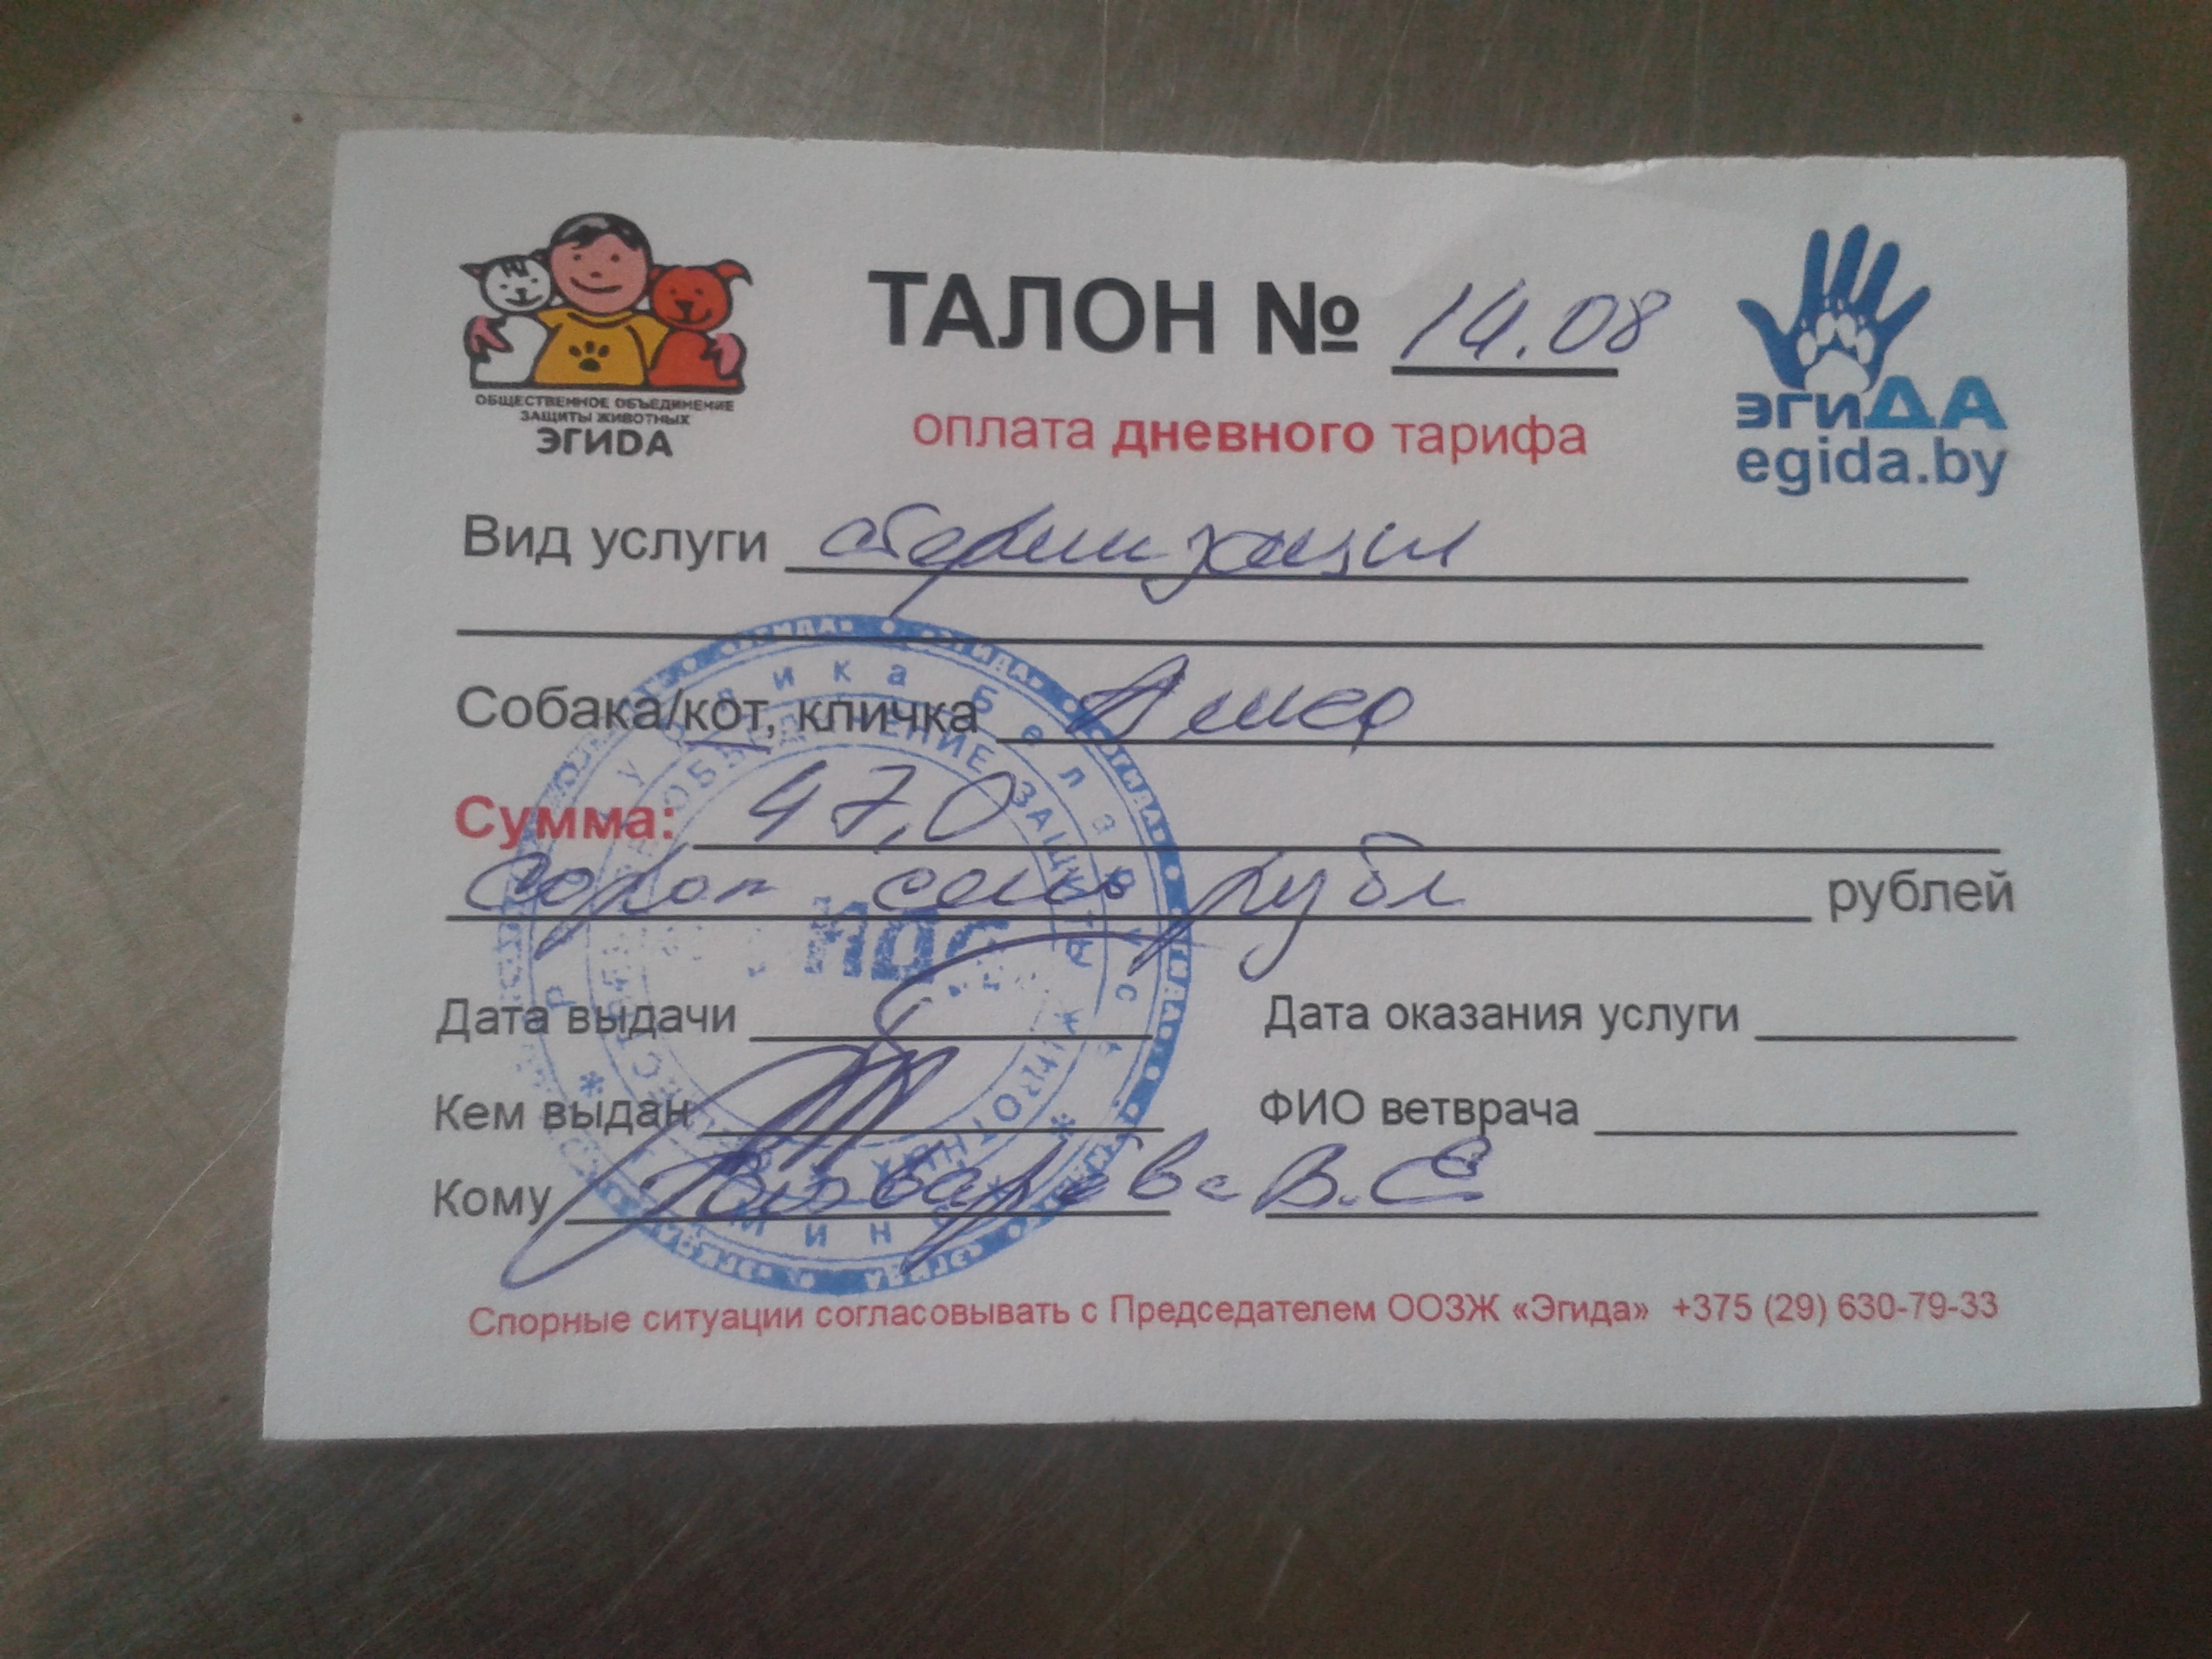 ОБЩЕСТВЕННОЕ ОБЪЕДИНЕНИЕ
ЗАЩИТЫ ЖИВОТНЫХ
ЭГИДА
ТАЛОН № 14.08
оплата дневного тарифа
эгиДА
egida.by
Вид услуги стерилизация
Собака/кот, кличка
Сумма: 47,0
сорок семь рубл рублей
Дата выдачи
Дата оказания услуги
Кем выдан
ФИО ветврача
Кому В.С
Спорные ситуации согласовывать с Председателем ООЗЖ «Эгида» +375 (29) 630-79-33